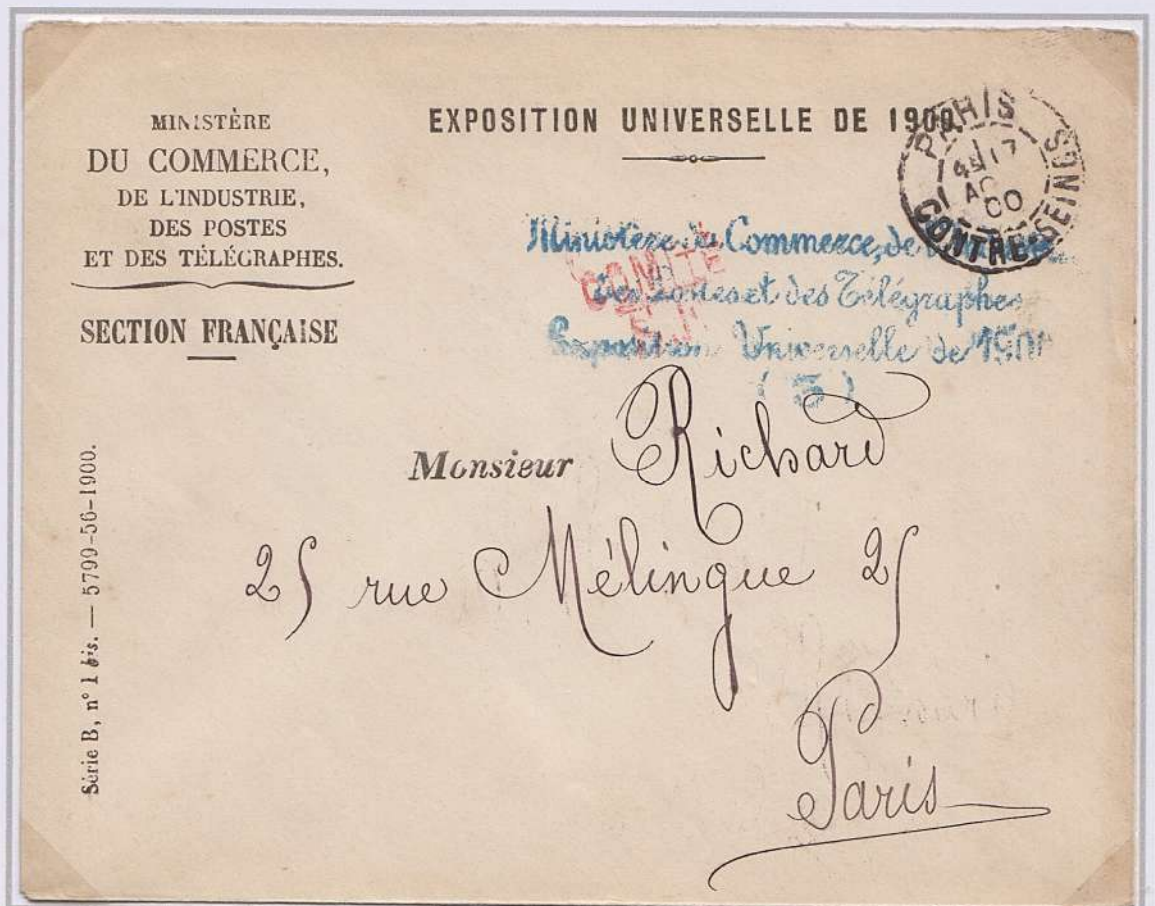 MINISTÈRE
DU COMMERCE,
DE L'INDUSTRIE,
DES POSTES
ET DES TÉLÉGRAPHES.
SECTION FRANÇAISE
EXPOSITION UNIVERSELLE DE 1900
PARIS
17
00
CONTRE-SEINGS
Ministère du Commerce, de
des Postes et des Télégraphes
Exposition Universelle de 1900
(5)
COMITÉ
Monsieur Richard
25 rue Mélingue 25
Paris
Série B, n° 1 bis. — 5799-56-1900.